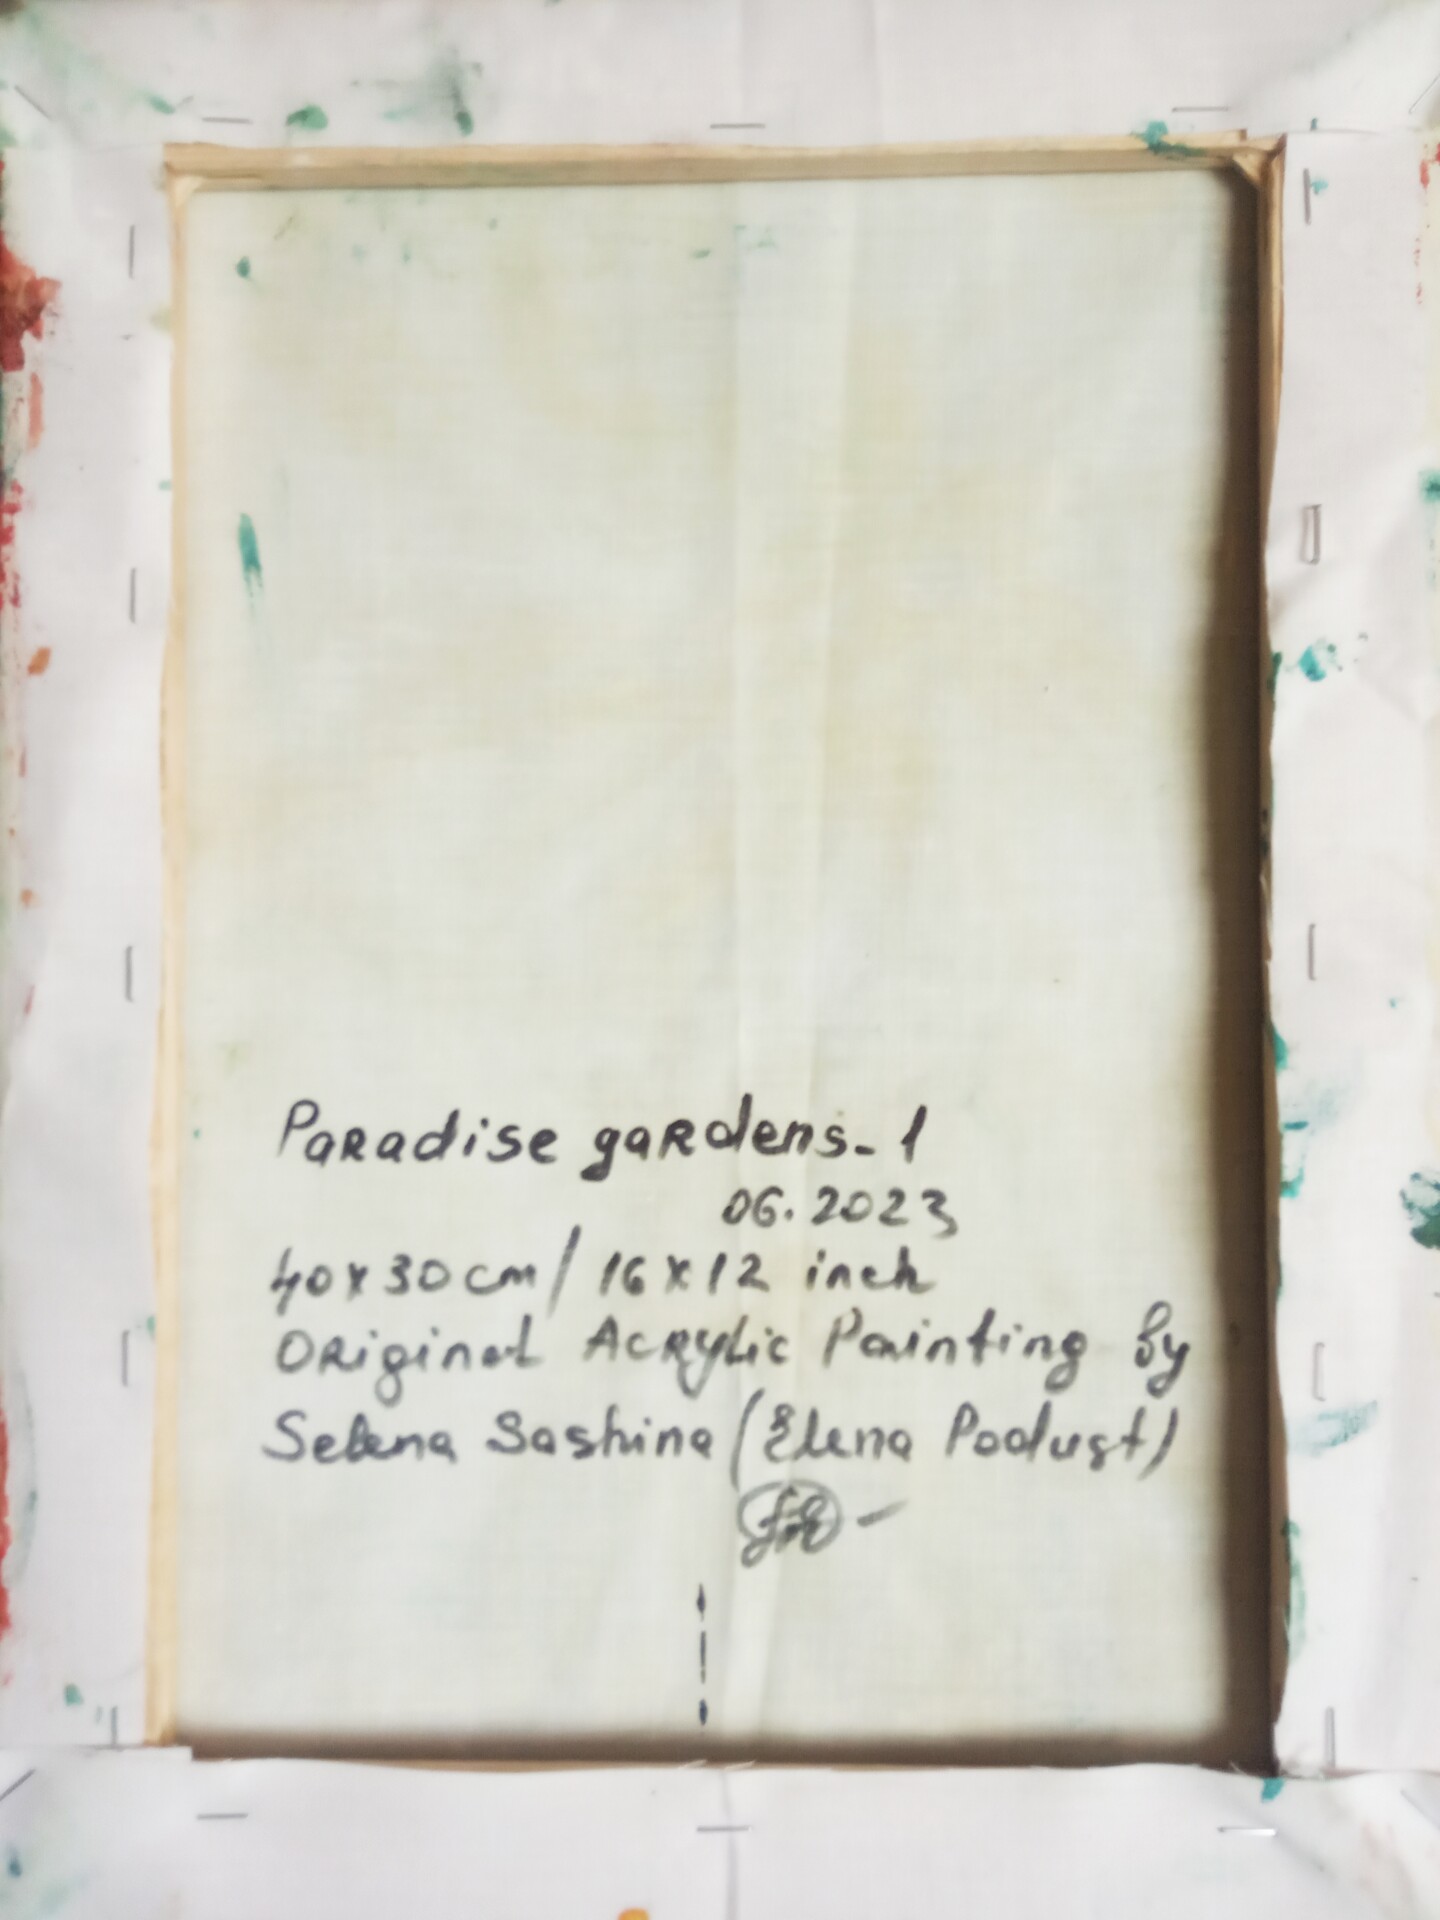 Paradise gardens-1
06.2023
40x30cm/ 16x12 inch
Original Acrylic Painting by
Selena Sashina (Elena Podust)